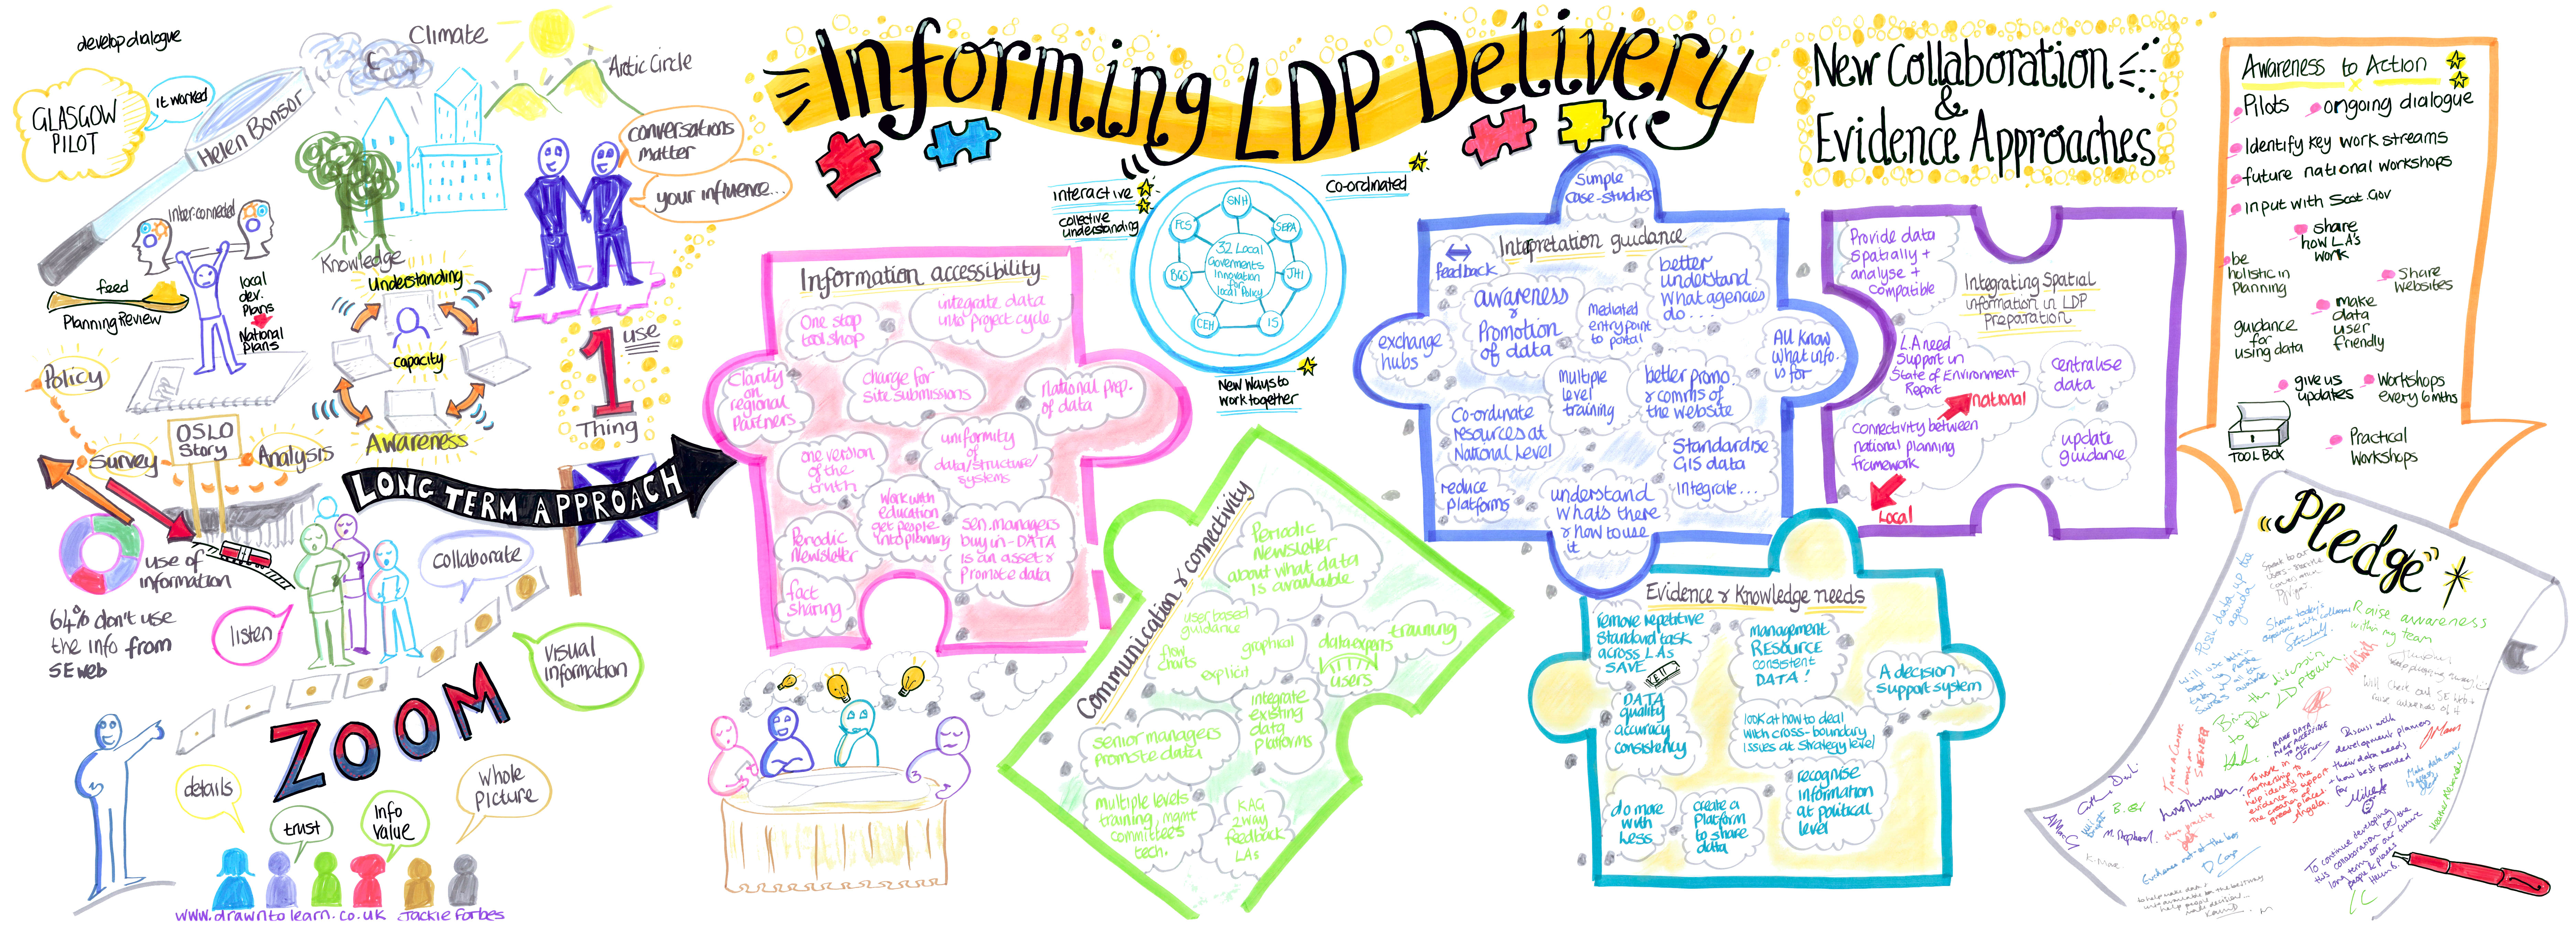 develop dialogue
Climate
Arctic Circle
GLASGOW
PILOT
it worked
Helen Bonsor
conversations
matter
your influence...
Inter-connected
Knowledge
feed
Planning Review
local
dev.
plans
National
plans
Understanding
capacity
Awareness
1
use
Thing
Policy
OSLO
Story
Survey
Analysis
LONG TERM APPROACH
use of
information
64% don't use
the info from
SEweb
listen
collaborate
visual
information
ZOOM
details
trust
Info
value
whole
picture
www.drawntolearn.co.uk Jackie Forbes
Informing LDP Delivery
New Collaboration
&
Evidence Approaches
interactive
collective
understanding
Co-ordinated
SNH
SEPA
JHI
IS
CEH
BGS
FCS
32 Local
Governments
Innovation
for
local Policy
New Ways to
Work together
Information accessibility
One stop
tool shop
integrate data
into project cycle
Clarity
on
regional
Partners
charge for
site submissions
National prep.
of data
one version
of the
truth
uniformity
of
data/structure/
systems
Work with
education
get people
into planning
Periodic
Newsletter
sen. managers
buy in - DATA
is an asset &
Promote data
fact
sharing
Communication & connectivity
Periodic
Newsletter
about what data
is available
user based
guidance
flow
charts
graphical
explicit
data experts
users
training
integrate
existing
data
platforms
senior managers
promote data
multiple levels
training, mgmt
committees
tech.
KAG
2way
feedback
LAs
Simple
case-studies
Intepretation guidance
feedback
awareness
&
Promotion
of data
Mediated
entry point
to portal
better
understand
what agencies
do...
exchange
hubs
All Know
what info.
is for
multiple
level
training
better promo
& comms of
the website
Co-ordinate
resources at
National Level
Standardise
GIS data
integrate...
reduce
platforms
understand
whats there
& how to use
it
Integrating Spatial
information in LDP
Preparation
Provide data
spatially +
analyse +
compatible
L.A need
support in
State of Environment
Report
national
connectivity between
national planning
framework
Local
centralise
data
update
guidance
Evidence & Knowledge needs
remove repetitive
standard task
across LAs
SAVE
management
RESOURCE
consistent
DATA!
A decision
support system
DATA
quality
accuracy
consistency
look at how to deal
with cross-boundary
issues at strategy level
recognise
information
at political
level
do more
with
less
create a
Platform
to share
data
Awareness to Action
Pilots
ongoing dialogue
Identify key work streams
future national workshops
input with Scot.Gov
share
how L.A's
work
be
holistic in
planning
share
websites
make
data
user
friendly
guidance
for
using data
give us
updates
Workshops
every 6 mths
TOOL BOX
Practical
Workshops
Pledge
Push data up the
agenda
Raise awareness
within my team
Bring the discussion
to the LDP team
MAKE DATA
MORE ACCESSIBLE
TO ALL
Discuss with
development planners
their data needs
+ how best provided
for
To work in
partnership to
help identify the
evidence to support
the creation of
good places.
Angela.
To continue developing
this collaboration for the
long term for our future
people & places
Helen B.